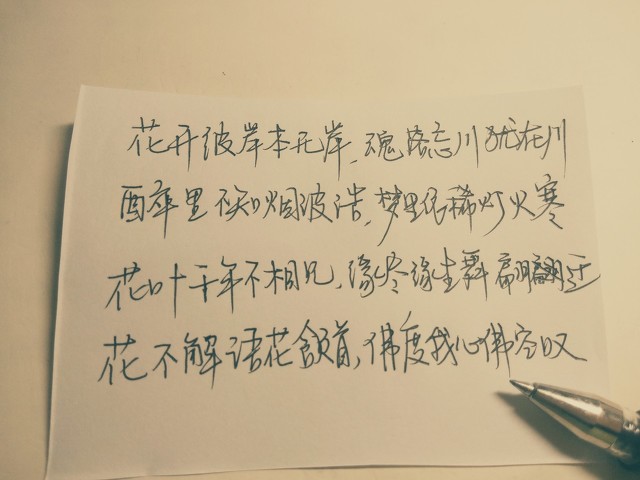 花开彼岸本无岸,魂落忘川犹在川
醉里不知烟波浩,梦里依稀灯火寒
花叶千年不相见,缘尽缘生舞翩跹
花不解语花颔首,佛度我心佛空叹